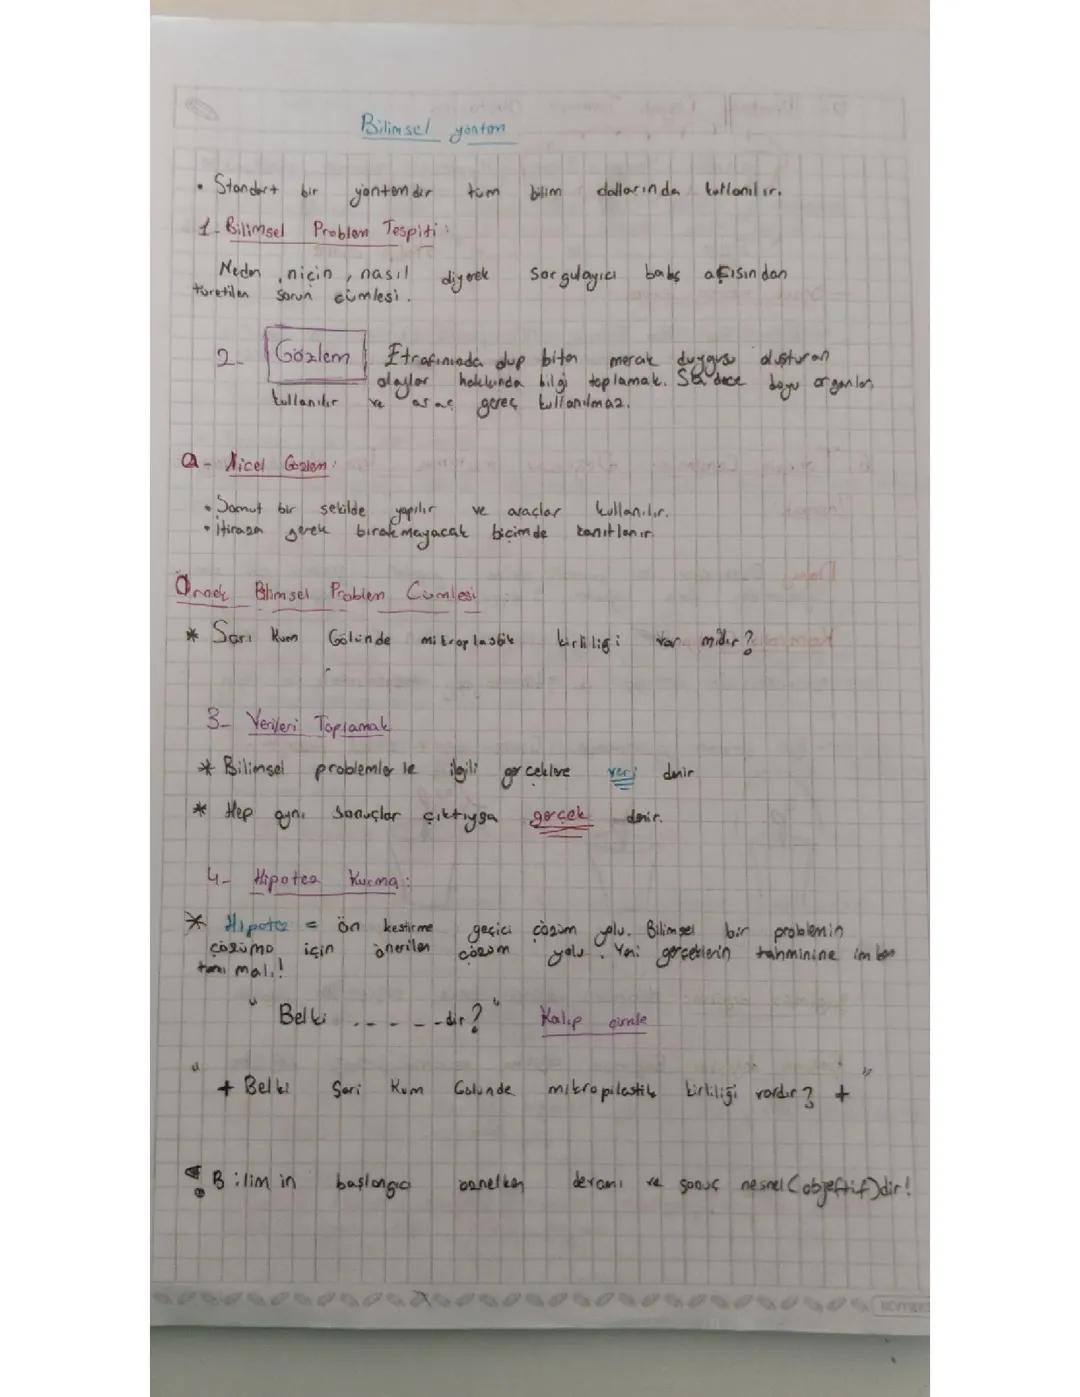 Bilimsel yöntem
• Standart bir yöntemdir tüm bilim dallarında kullanılır.
1- Bilimsel Problem Tespiti:
Neden, niçin, nasıl diyerek sorgulayıcı bakış açısından
türetilen sorun cümlesi.
2- Gözlem Etrafınızda olup biten merak duygusu oluşturan
olaylar hakkında bilgi toplamak. Sadece duyu organları
kullanılır ve araç gereç kullanılmaz.
a- Nicel Gözlem:
• Somut bir şekilde yapılır ve araçlar kullanılır.
• İtiraza gerek bırakmayacak biçimde kanıtlanır.
Örnek Bilimsel Problem Cümlesi
* Sarı Kum Gölünde mikroplastik kirliliği var mıdır?
3- Verileri Toplamak
* Bilimsel problemlerle ilgili gerçeklere veri denir
* Hep aynı sonuçlar çıktıysa gerçek denir.
4- Hipotez Kurma:
* Hipotez = ön kestirme geçici çözüm yolu. Bilimsel bir problemin
çözümü için önerilen çözüm yolu. Yeni gerçeklerin tahminine imkan
tanımalı!
" Belki - - - - - -dir? " Kalıp cümle
" + Belki Sarı Kum Gölünde mikropilastik kirliliği vardır? + "
! Bilimin başlangıcı öznelken devamı ve sonuç nesnel (objektif)dir!